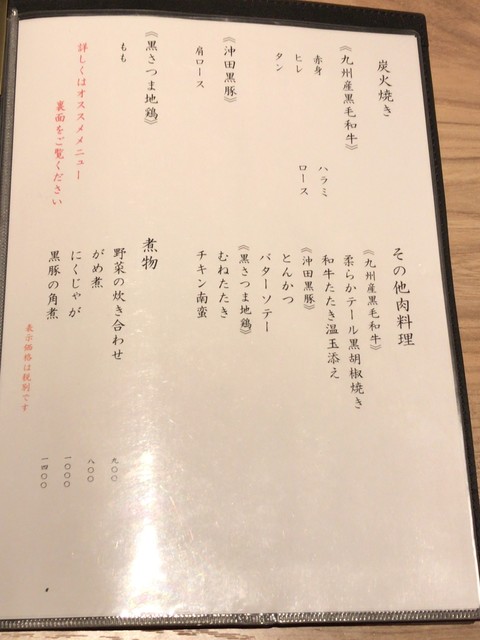 炭火焼き
《九州産黒毛和牛》
赤身
ハラミ
ヒレ
ロース
タン
《沖田黒豚》
肩ロース
《黒さつま地鶏》
もも
詳しくはオススメメニュー
裏面をご覧ください
その他肉料理
《九州産黒毛和牛》
柔らかテール黒胡椒焼き
和牛たたき温玉添え
《沖田黒豚》
とんかつ
バターソテー
《黒さつま地鶏》
むねたたき
チキン南蛮
煮物
野菜の炊き合わせ 九〇〇
がめ煮 八〇〇
にくじゃが 一〇〇〇
黒豚の角煮 一四〇〇
表示価格は税別です